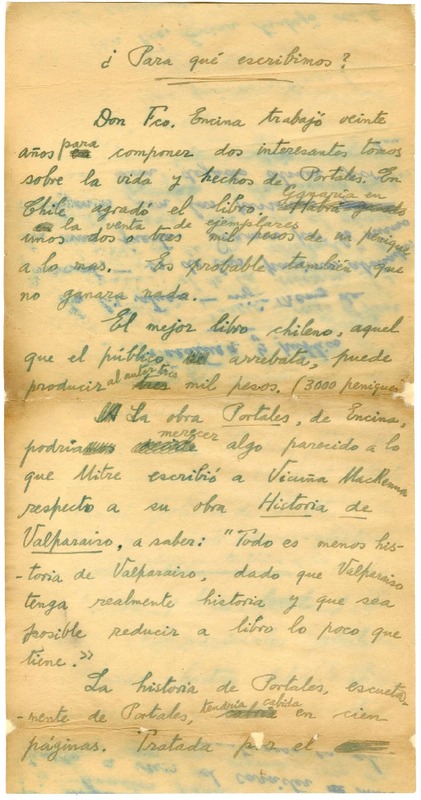 ¿Para qué escribimos?
Don Fco. Encina trabajó veinte
años para componer dos interesantes tomos
sobre la vida y hechos de Portales. En
Chile agradó el libro. Ganaría en
la venta de ejemplares
unos dos o tres mil pesos de un penique
a lo mas. Es probable también que
no ganara nada.
El mejor libro chileno, aquel
que el público arrebata, puede
producir al autor tres mil pesos. (3000 peniques
La obra Portales, de Encina,
podría merecer algo parecido a lo
que Mitre escribió a Vicuña MacKenna
respecto a su obra Historia de
Valparaiso, a saber: "Todo es menos his-
-toria de Valparaiso, dado que Valparaiso
tenga realmente historia y que sea
posible reducir a libro lo poco que
tiene."
La historia de Portales, escueta-
-mente de Portales, tendría cabida en cien
páginas. Tratada por el